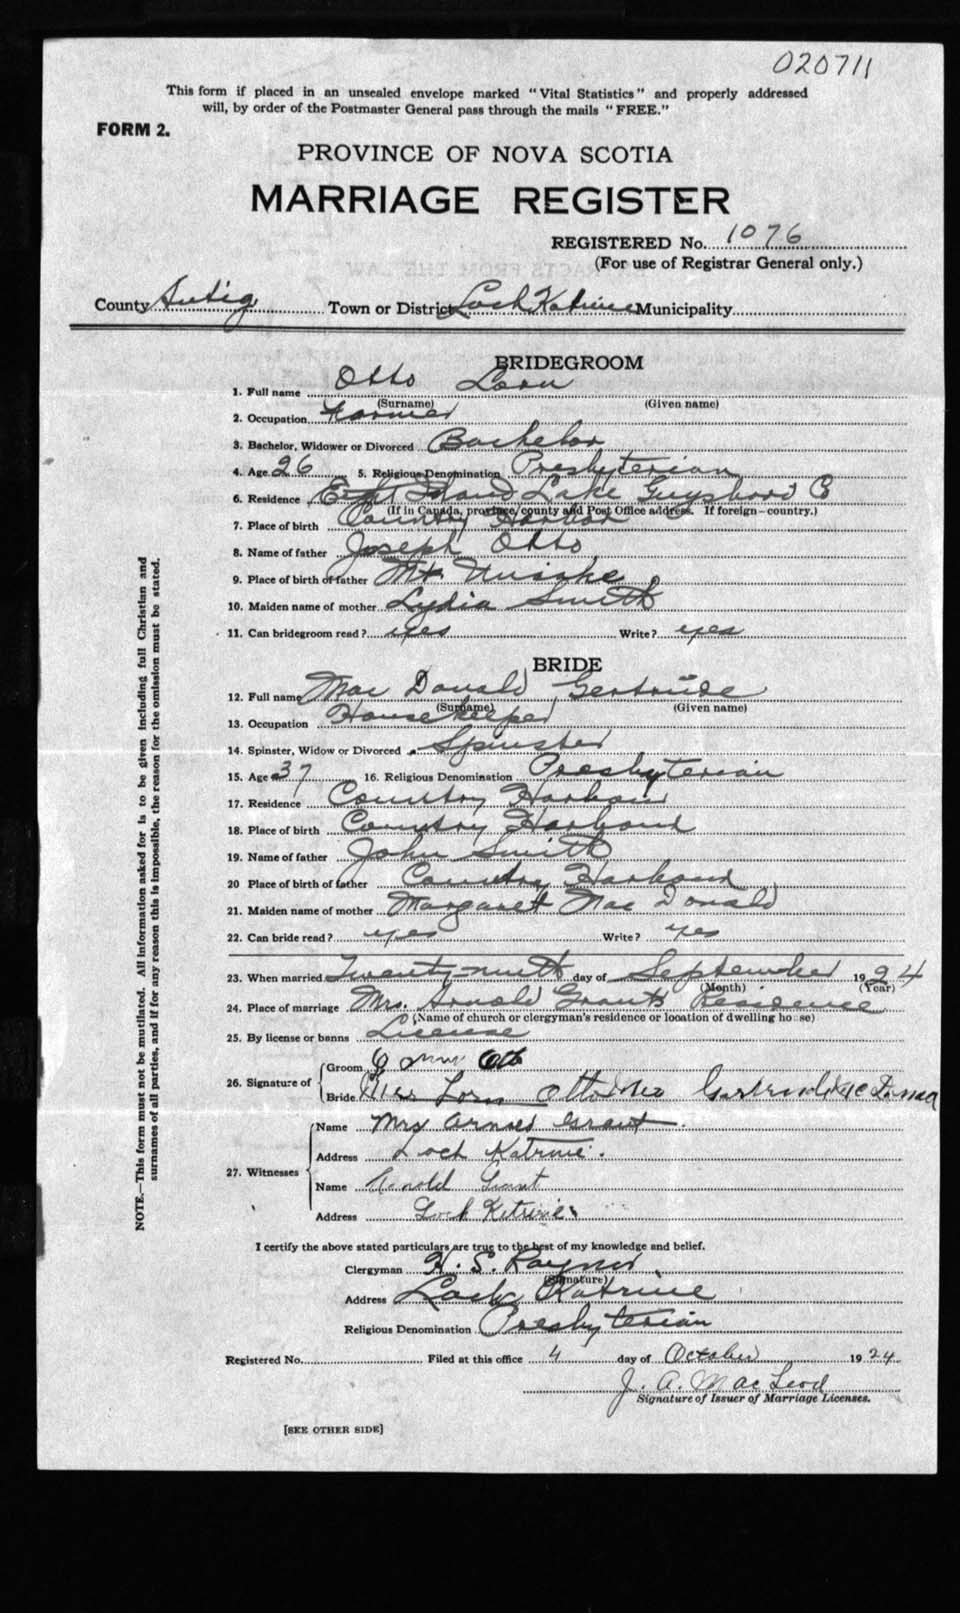 020711
This form if placed in an unsealed envelope marked "Vital Statistics" and properly addressed
will, by order of the Postmaster General pass through the mails "FREE."
FORM 2.
PROVINCE OF NOVA SCOTIA
MARRIAGE REGISTER
REGISTERED No. 1076
(For use of Registrar General only.)
County Antig Town or District Loch Katrine Municipality
BRIDEGROOM
1. Full name Otto Lorn
(Surname) (Given name)
2. Occupation Farmer
3. Bachelor, Widower or Divorced Bachelor
4. Age 26 5. Religious Denomination Presbyterian
6. Residence Eight Island Lake Guysboro
(If in Canada, province/county and Post Office address. If foreign—country.)
7. Place of birth Country Harbor
8. Name of father Joseph Otto
9. Place of birth of father Mt
10. Maiden name of mother Lydia Smith
11. Can bridegroom read? yes Write? yes
BRIDE
12. Full name Mac Donald Gertrude
(Surname) (Given name)
13. Occupation Housekeeper
14. Spinster, Widow or Divorced Spinster
15. Age 37 16. Religious Denomination Presbyterian
17. Residence Country Harbour
18. Place of birth Country Harbour
19. Name of father John Smith
20 Place of birth of father Country Harbour
21. Maiden name of mother Margaret Mac Donald
22. Can bride read? yes Write? yes
23. When married Twenty-ninth day of September 1924
(Month) (Year)
24. Place of marriage Mrs. Arnold Grants Residence
(Name of church or clergyman's residence or location of dwelling house)
25. By license or banns License
26. Signature of Groom
Bride Lorn Otto
27. Witnesses Name Mrs Arnold Grant
Address Loch Katrine.
Name Arnold Grant
Address Loch Ketrine
I certify the above stated particulars are true to the best of my knowledge and belief.
Clergyman H. S. Raynor
(Signature)
Address Loch Katrine
Religious Denomination Presbyterian
Registered No. Filed at this office 4 day of October 1924
J. A. MacLeod
Signature of Issuer of Marriage Licenses.
[SEE OTHER SIDE]
NOTE.—This form must not be mutilated. All information asked for is to be given including full Christian and
surnames of all parties, and if for any reason this is impossible, the reason for the omission must be stated.